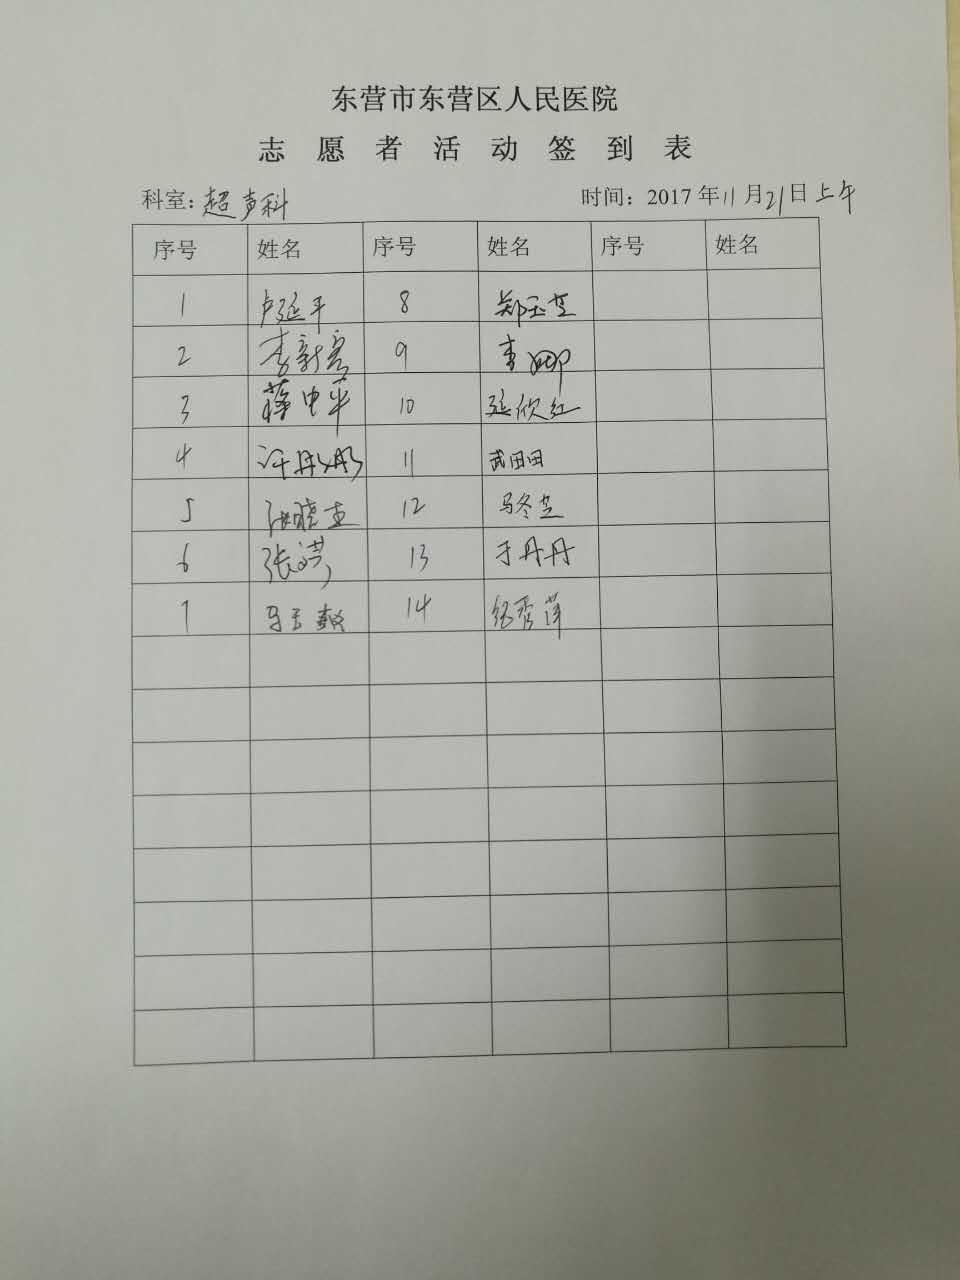 东营市东营区人民医院
志愿者活动签到表
科室:超声科 时间:2017年11月21日上午
序号 姓名 序号 姓名 序号 姓名
1 卢延平 8 郑玉芝
2 李新 9 李娜
3 蒋中平 10 延欣红
4 许彤彤 11 武田田
5 张晓 12 马冬芝
6 张 13 于丹丹
7 马玉敏 14 纪秀萍